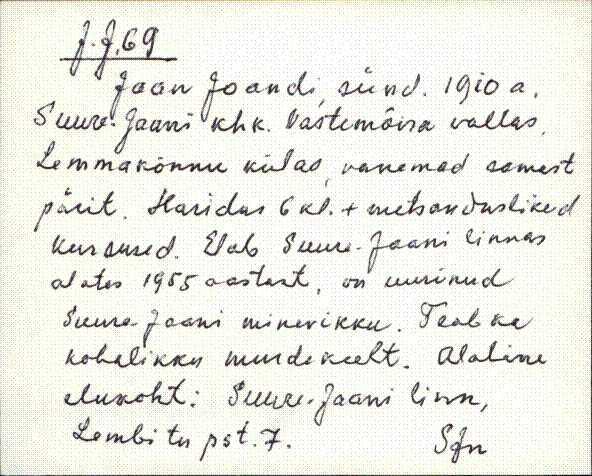 J.J.69
Jaan Joandi, sünd. 1910 a.
Suure-Jaani khk. Vastemõisa vallas,
Lemmakõnnu külas, vanemad samast
pärit. Haridus 6 kl. + metsanduslikud
kursused. Elab Suure-Jaani linnas
alates 1955 aastast, on uurinud
Suure-Jaani minevikku. Teab ka
kohalikku murdekeelt. Alaline
elukoht: Suure-Jaani linn,
Lembitu pst. 7.